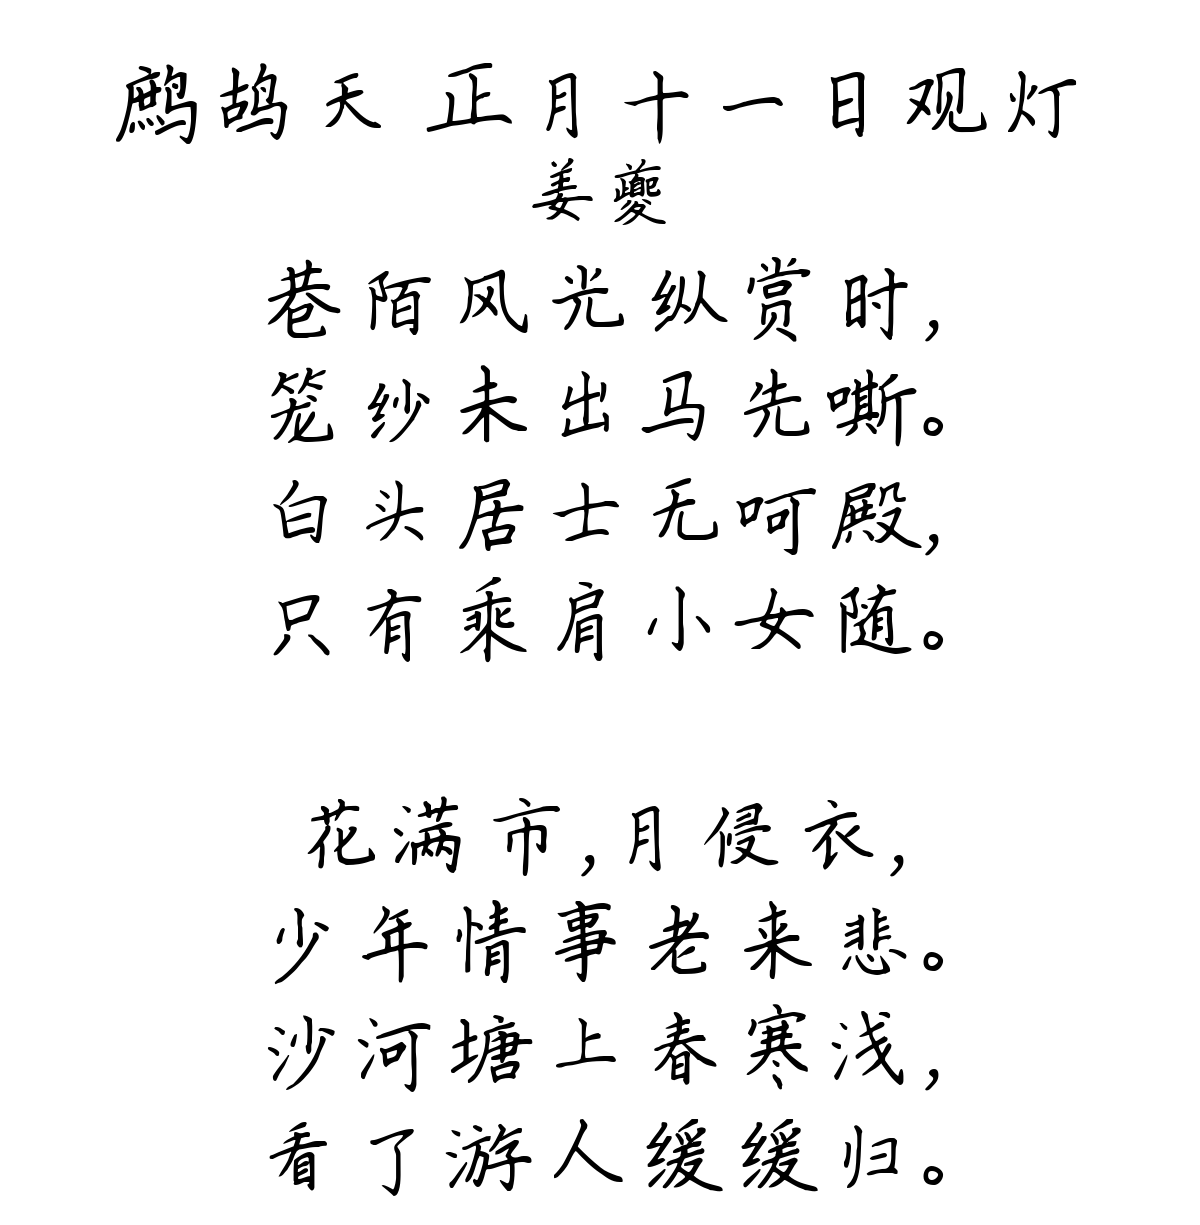 鹧鸪天 正月十一日观灯
姜夔
巷陌风光纵赏时,
笼纱未出马先嘶。
白头居士无呵殿,
只有乘肩小女随。
花满市,月侵衣,
少年情事老来悲。
沙河塘上春寒浅,
看了游人缓缓归。